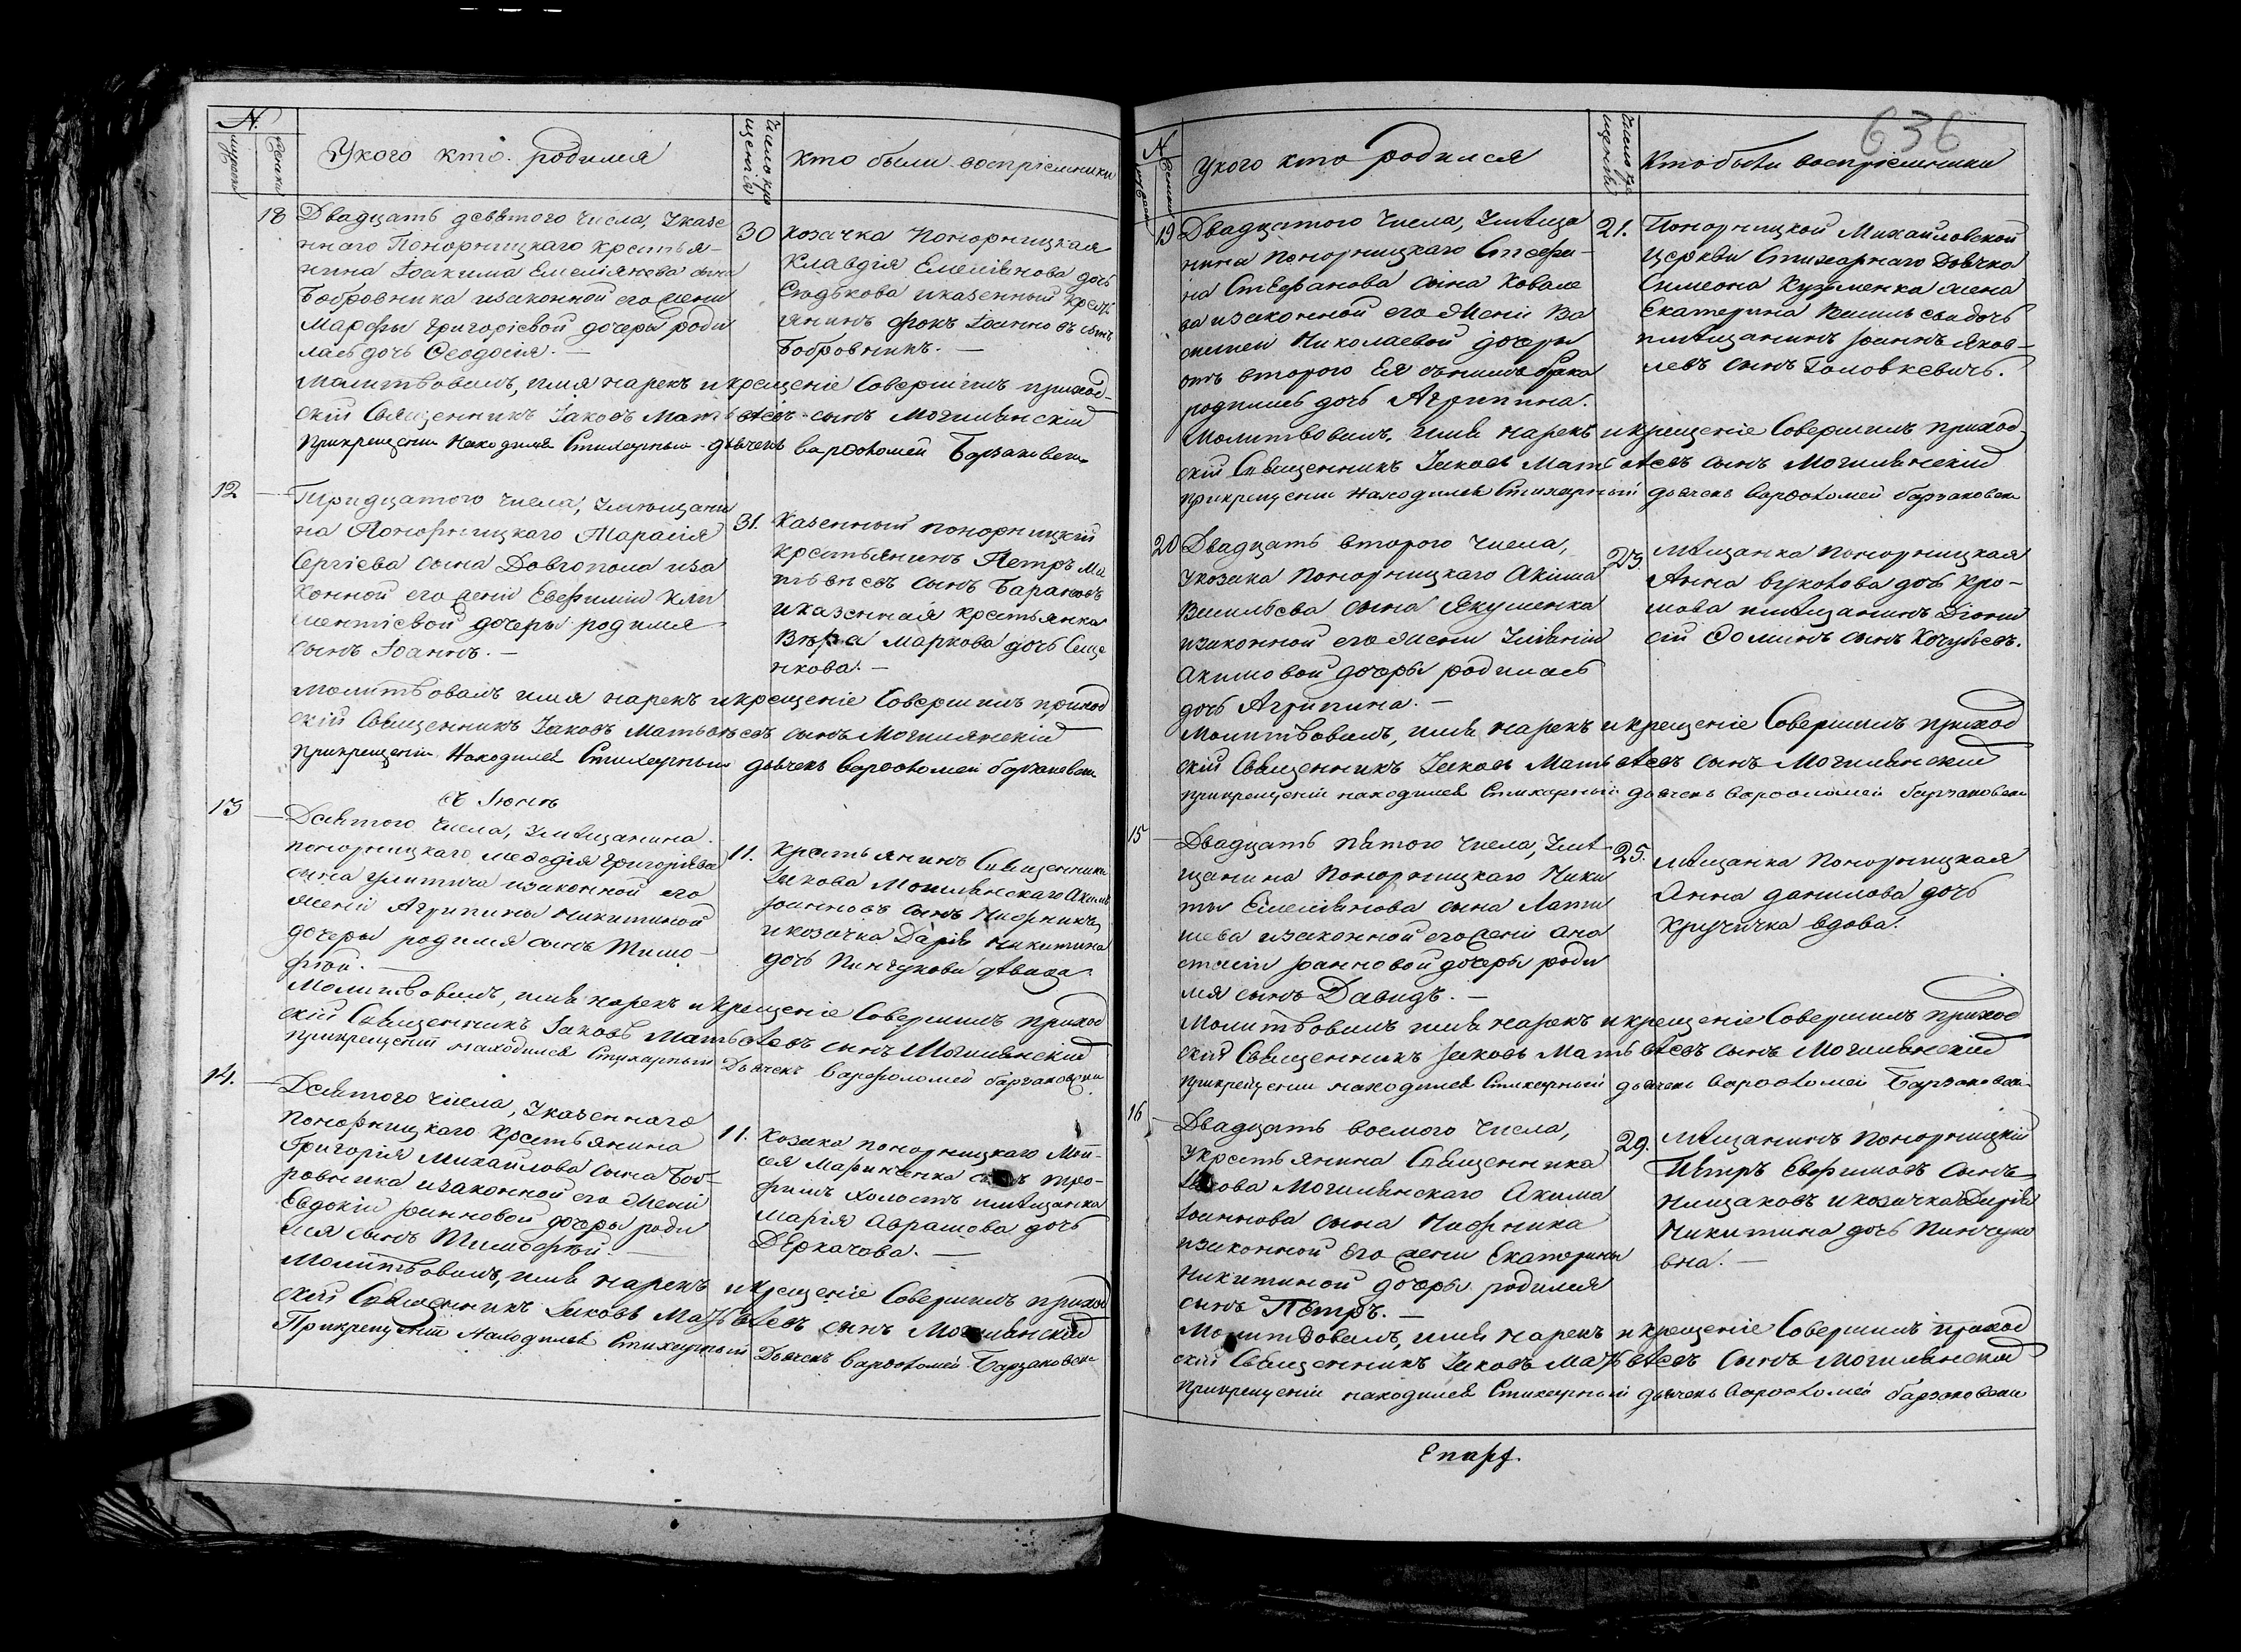 N.
мужеск
женск
У кого кто родился
Число кре
щенія
кто были воспріемники
18
Двадцать девятого числа, Указе
ннаго Понорницкаго крестья-
нина Іоакима Емеліянова сына
Бобровника изаконной его жени
Марфы Григоріевой дочеры роди
лась дочь Феодосія. —
30
козачка Понорницкая
Клавдія Емеліянова дочь
иказенный крест
янинъ Фокъ Іоанновъ сынъ
Бобровникъ. —
Молитвовалъ, имя нарекъ икрещеніе Совершилъ приход-
скій Священникъ Іаковъ Матвѣевъ сынъ Могилянскій
прикрещеніи Находился Стихарный дьячекъ варѳоломей Барзаковск
12 —
Тридцатого числа, Умѣщани
на Понорницкаго Тарасія
Сергіева сына Довгопола иза
конной его жени Евфиміи Кли
ментіевой дочеры родился
сынъ Іоаннъ. —
31.
Казенный понорницкій
крестьянинъ Петръ Ма
твѣевъ сынъ Барановъ
иказенная крестьянка
Вѣра Маркова дочь Сище
нкова. —
Молитвовалъ имя нарекъ икрещеніе Совершилъ приход
скій Священникъ Іаковъ Матвѣевъ сынъ Могилянскій
прикрещеніи Находился Стихарный дьячекъ варѳоломей барзаковск
въ Іюнѣ
13 —
Девятого числа, Умѣщанина
понорницкаго меѳодія григоріева
сына изаконной его
жени Агрипины никитиной
дочеры родился сынъ Тимо-
фтой. —
11.
Крестьянинъ Священника
Іакова Могилянскаго Акимъ
Іоанновъ сынъ Ничрникъ
икозачка Дарія никитина
дочь Пинчукова дѣвица
Молитвовалъ, имя нарекъ икрещеніе Совершилъ приход
скій Священникъ Іаковъ Матвѣевъ сынъ Могилянскій
прикрещеніи находился Стихарный Дьячекъ варфоломей барзаковски
14. —
Девятого числа, Указенного
Понорницкаго Крестьянина
Григорія Михайлова сына Боб-
ровника изаконной его жени
Евдокіи Іоанновой дочеры роди
лся сынъ Тимофтой. —
11.
Козака понорницкаго Мои-
сея Маринченка сынъ тро-
фимъ холостъ имѣщанка
Марія Абрамова дочь
Деркачова. —
Молитвовалъ, имя нарекъ икрещеніе Совершилъ приход
скій Священникъ Іаковъ Матвѣевъ сынъ Могилянскій
Прикрещеніи Находился Стихарный Дьячекъ варѳоломей Барзаковск
636
N.
мужеск
женск
Укого кто родился
Число кре
щенія
Кто были воспріемники
19
Двадцатого числа, Умѣща
нина понорницкаго Стефа-
на Стефанова сына Ковале
ва изаконной его жени Ва
силисы Николаевой дочеры
отъ второго Ея сънимъ брака
родилась дочь Агрипина.
21.
Понорницкой Михайловской
церкви Стихарнаго Дьячка
Симеона Кузьменка жена
Екатерина дочь
имѣщанинъ Іоаннъ Яков-
левъ сынъ Головкевичъ.
Молитвовалъ, имя нарекъ икрещеніе Совершилъ приход-
скій Священникъ Іаковъ Матвѣевъ сынъ Могилянскій
прикрещеніи находился Стихарный дьячекъ варѳоломей барзаковски
20
Двадцать второго числа,
Укозака понорницкаго Акима
Васильева сына Якушенка
изаконной его жени Уліяніи
Акимовой дочеры родилась
дочь Агрипина. —
23.
мѣщанка понорницкая
Анна дочь Кро-
мова имѣщанинъ Діони
сій Ѳоминъ сынъ Кочубѣевъ.
Молитвовалъ, имя нарекъ икрещеніе Совершилъ приход
скій Священникъ Іаковъ Матвѣевъ сынъ Могилянскій
прикрещеніи находился Стихарный дьячекъ варѳоломей барзаковски
15 —
Двадцать пятого числа, Умѣ
щанина понорницкаго Ники
ты Емеліянова сына Лати
шева изаконной его жени Ана
стасіи Іоанновой дочеры роди
лся сынъ Давидъ. —
25.
мѣщанка понорницкая
Анна данилова дочь
Кручичка вдова.
Молитвовалъ имя нарекъ икрещеніе Совершилъ приход
скій Священникъ Іаковъ Матвѣевъ сынъ Могилянскій
прикрещеніи находился Стихарный дьячекъ варѳоломей Барзаковски
16 —
Двадцать восмого числа,
Укрестьянина Священника
Іакова Могилянскаго Акима
Іоаннова сына Ничрника
изаконной Его жени Екатерины
Никитиной дочеры родился
сынъ Петръ. —
29.
мѣщанинъ понорницкій
Петръ Евфимовъ сынъ
Пищаковъ икозачка Дарія
Никитина дочь Пинчуко
вна. —
Молитвовалъ, имя нарекъ икрещеніе Совершилъ приход
скій Священникъ Іаковъ Матвѣевъ сынъ Могилянскій
прикрещеніи находился Стихарный дьячекъ варѳоломей барзаковски